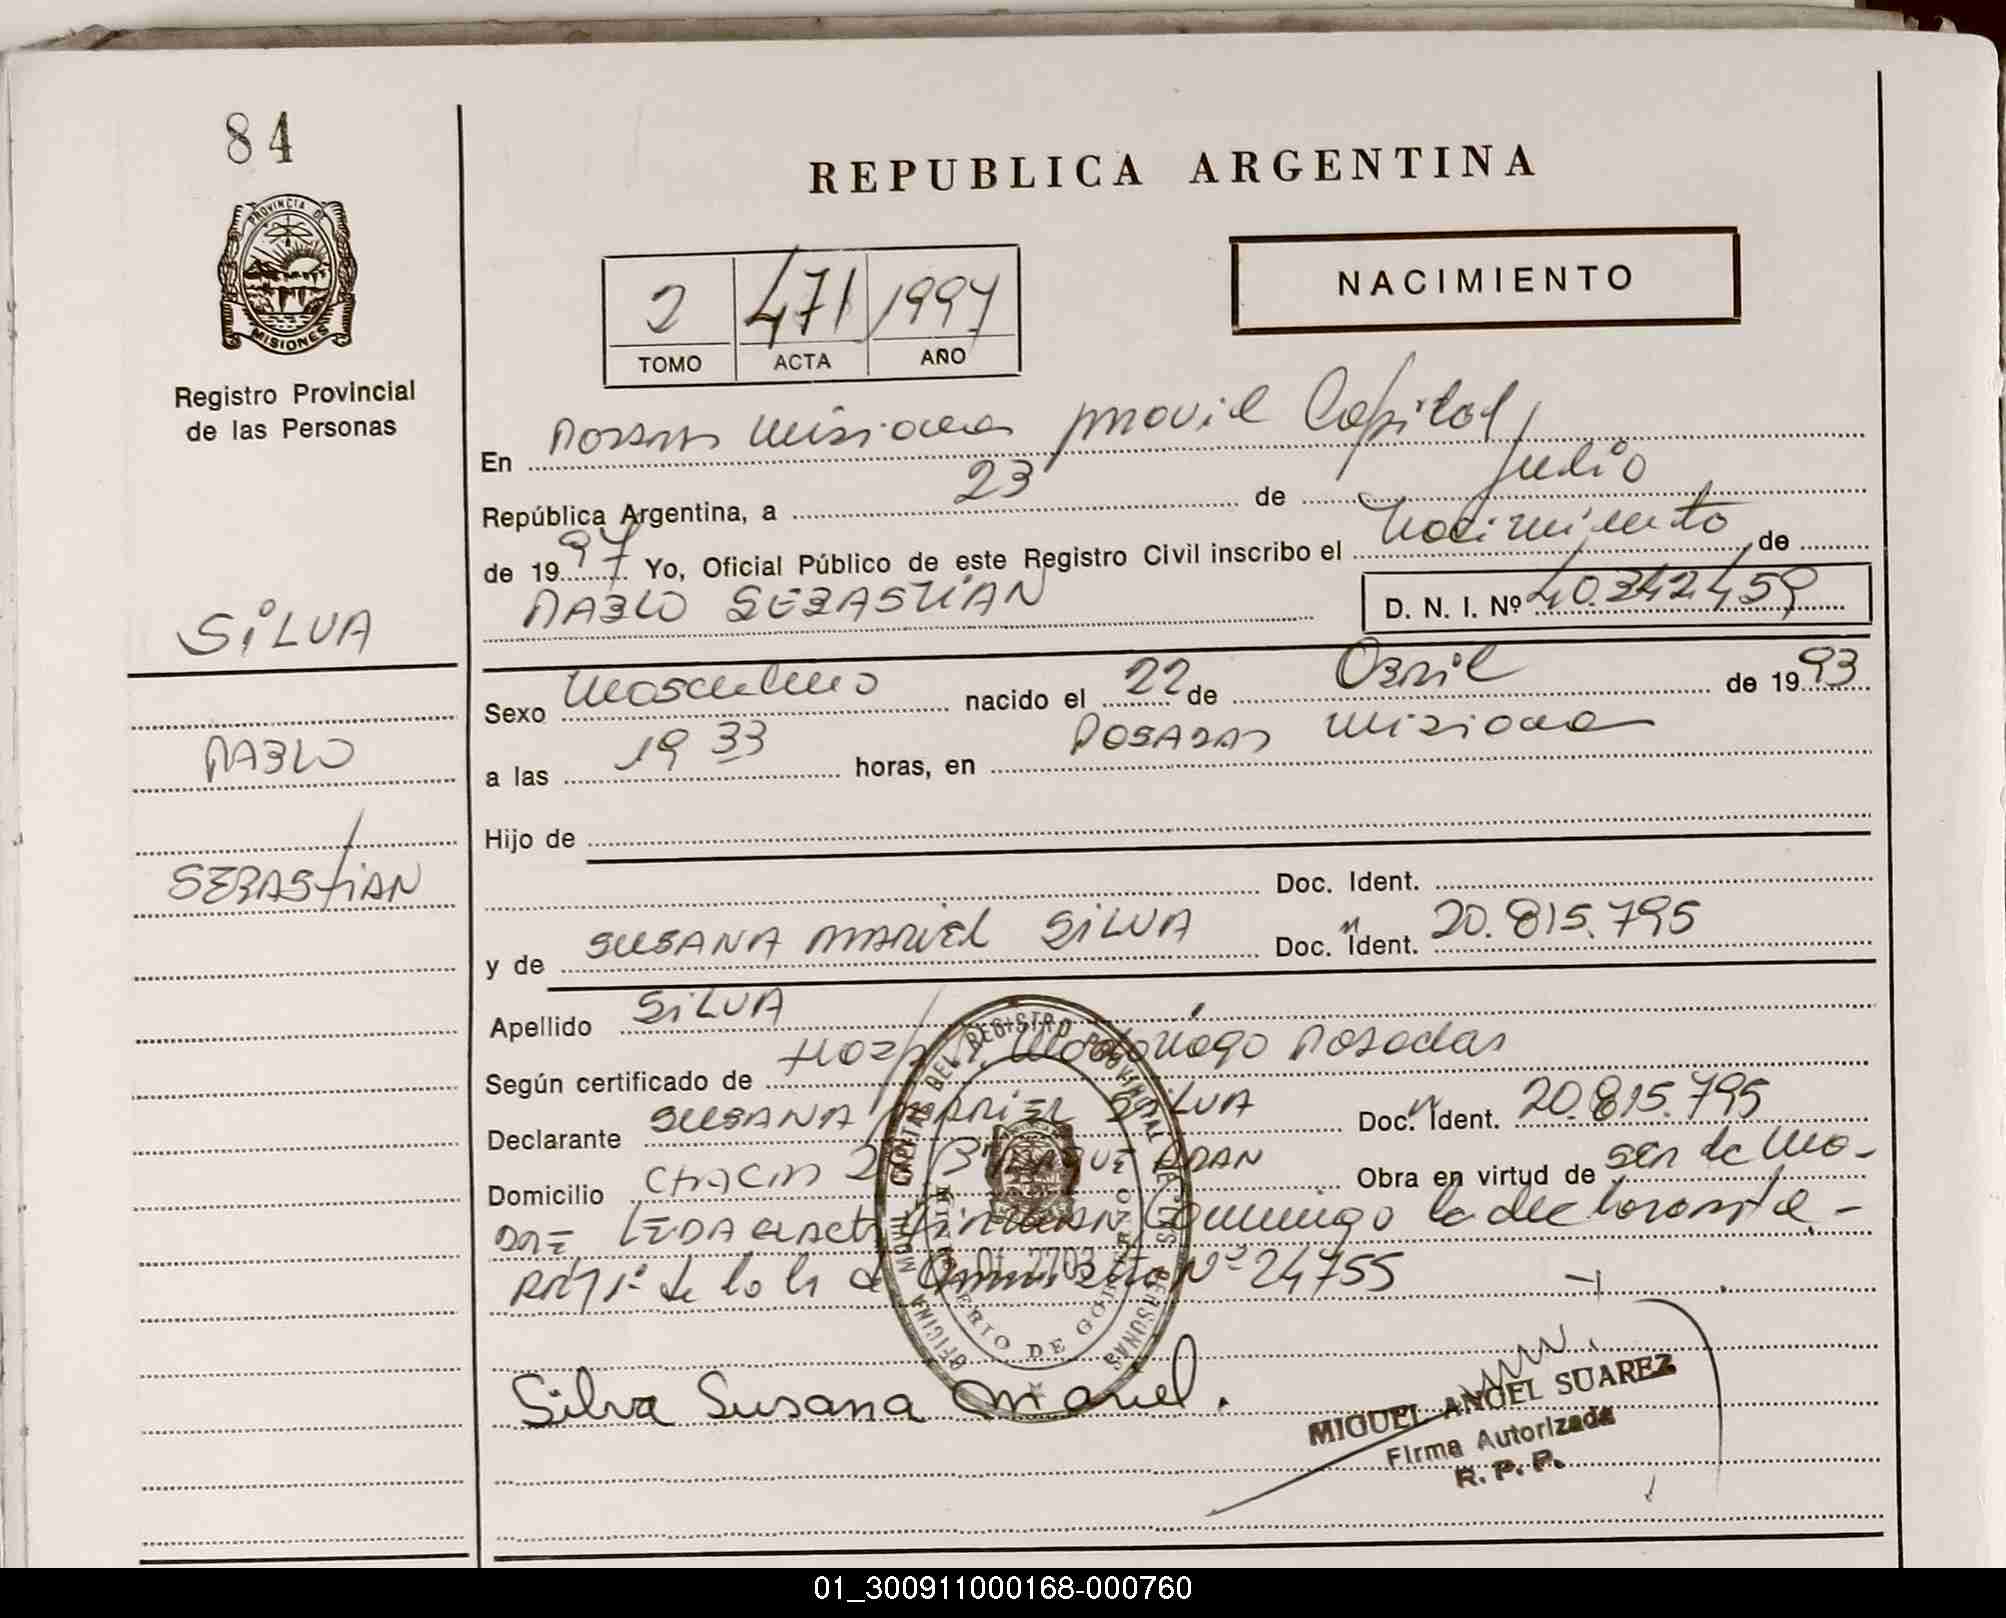 84
PROVINCIA DE
MISIONES
Registro Provincial
de las Personas
REPUBLICA ARGENTINA
NACIMIENTO
2 471 1997
TOMO ACTA AÑO
En Posadas Misiones movil Capital
República Argentina, a 23 de Julio
de 1997 Yo, Oficial Público de este Registro Civil inscribo el Nacimiento de
PABLO SEBASTIAN D. N. I. Nº 40.342.459
SILVA
Sexo Masculino nacido el 22 de Abril de 1993
a las 19 33 horas, en POSADAS Misiones
PABLO
Hijo de
SEBASTIAN
Doc. Ident.
y de SUSANA MARIEL SILVA Doc. Ident. 20.815.795
Apellido SILVA
Según certificado de Hosp. R. Madariaga Posadas
Declarante SUSANA MARIEL SILVA Doc. Ident. 20.815.795
Domicilio CHACRA Bº ROQUE Obra en virtud de ser la Ma-
DRE la declarante -
de la Nº 24755
OFICINA MOVIL CAPITAL DEL REGISTRO PROVINCIAL DE LAS PERSONAS
MINISTERIO DE GOBIERNO
Silva Susana Mariel.
MIGUEL ANGEL SUAREZ
Firma Autorizada
R. P. P.
01_300911000168-000760